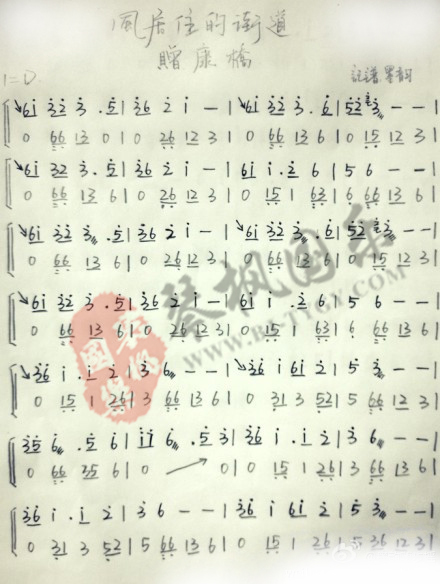 风居住的街道
赠康桥
1=D 记谱:墨韵
6i 32 3 . 5 | 36 2 i — | 6i 32 3 . 6 | 52 3 — — |
0 66 13 0 | 0 26 12 3 | 0 66 13 6 | 0 15 12 3 |
6i 32 3 . 5 | 36 2 i — | 6i i . 2 6 | 5 6 — — |
0 66 13 6 | 0 26 12 3 | 0 15 1 63 | 6 66 13 6 |
6i 32 3 . 5 | 36 2 i — | 6i 32 3 . 6 | 52 3 — — |
0 66 13 6 | 0 26 12 3 | 0 66 13 6 | 0 15 12 3 |
6i 32 3 . 5 | 36 2 i — | 6i i . 2 6 | 5 6 — — |
0 66 13 6 | 0 26 12 3 | 0 15 1 63 | 6 66 13 6 |
36 i . i 2 | 3 6 — — | 36 i 6i 2 | 5 3 — — |
0 15 1 26 | 3 66 13 6 | 0 31 3 52 | 5 66 12 3 |
35 6 . 5 6 | ii 6 . 5 3 | 36 i . i 2 | 3 6 — — |
0 66 35 6 | 0 0 | 0 15 1 26 | 3 66 13 6 |
36 i . i 2 | 3 6 — — | 36 i 6i 2 | 5 3 — — |
0 31 3 52 | 5 66 13 6 | 0 15 1 26 | 5 36 12 3 |
琴枫国乐